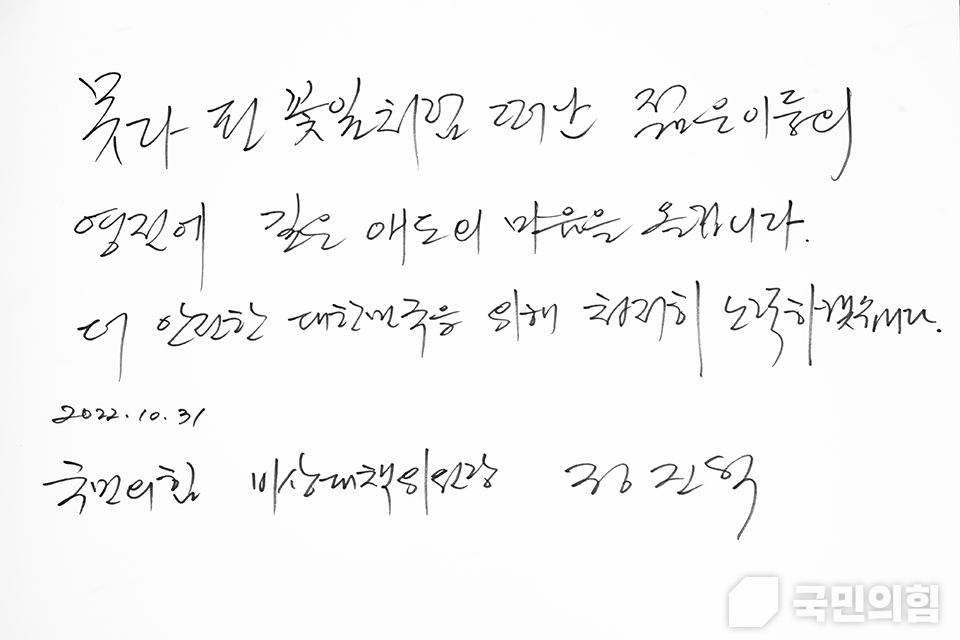 못다 핀 꽃잎처럼 떠난 젊은이들의
영전에 깊은 애도의 마음을 올립니다.
더 안전한 대한민국을 위해 처절히 노력하겠습니다.
2022.10.31
국민의힘 비상대책위원장 정진석
국민의힘